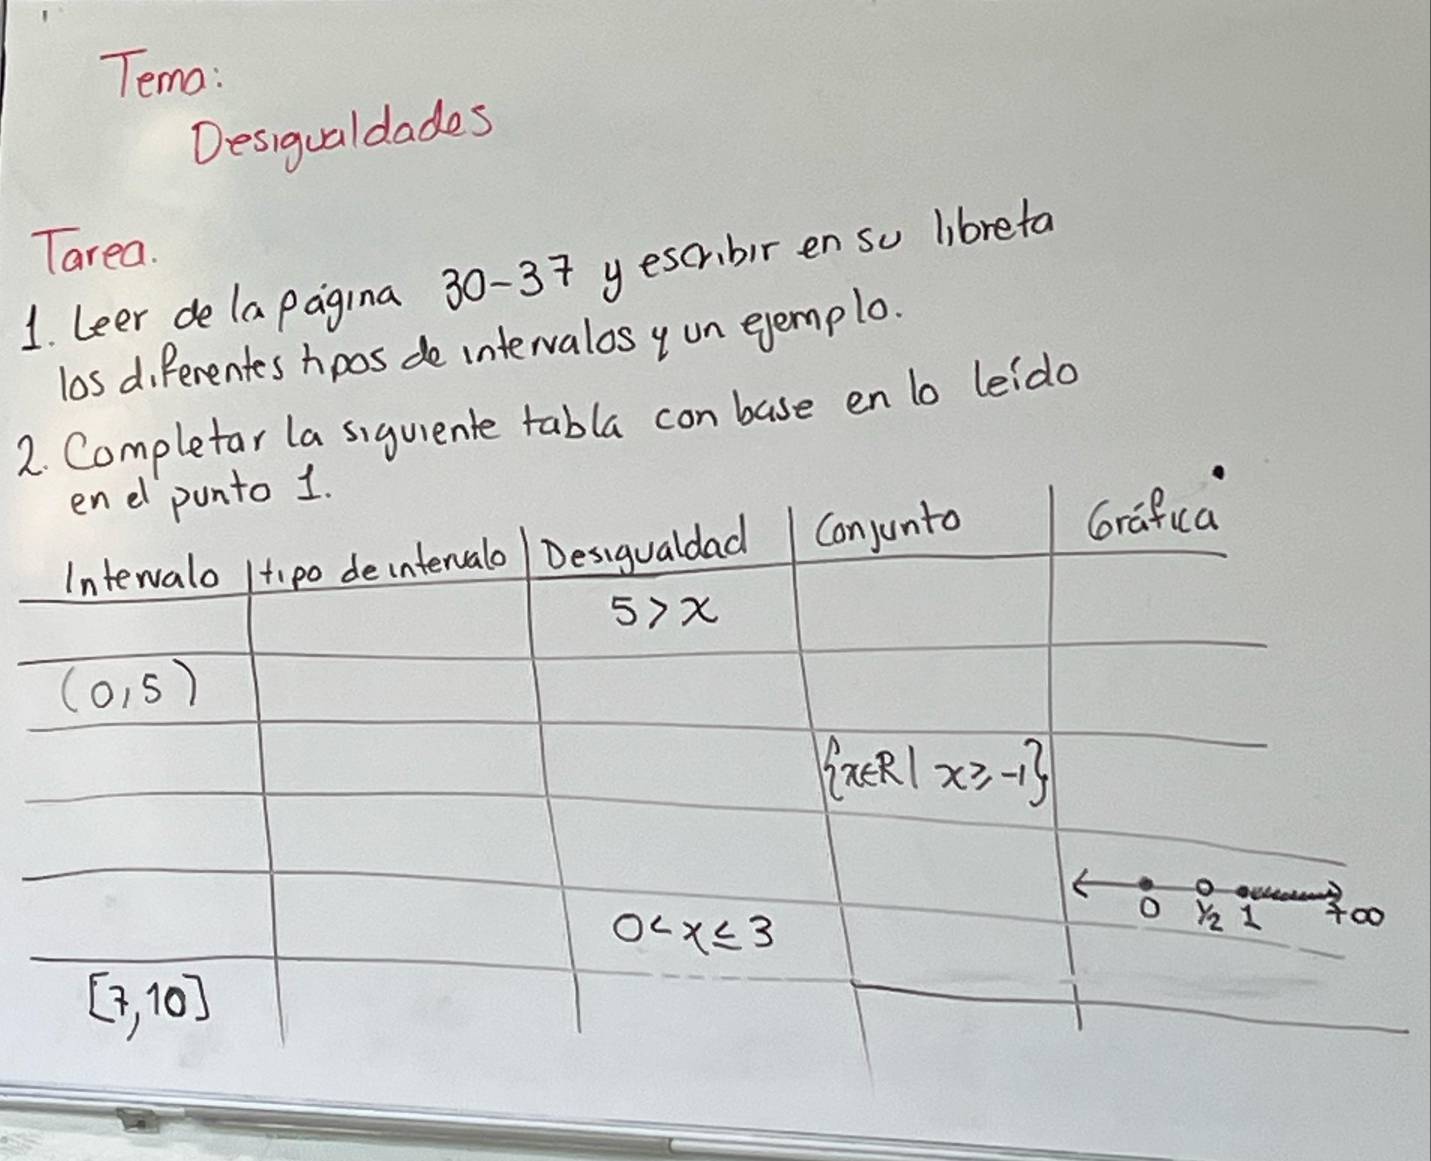 Tema:
Desigualdades
Tarea.
1. Leer de la página 30-37 y escribir en su libreta
los diferentes tipos de intervalos y un ejemplo.
2. Completar la siguiente tabla con base en lo leído
en el punto 1.
Intervalo | tipo de intervalo | Desigualdad | Conjunto | Gráfica
5 > x
(0,5)
{x∈R | x ≥ -1}
0 1/2 1 +∞
0 < x ≤ 3
[7,10]